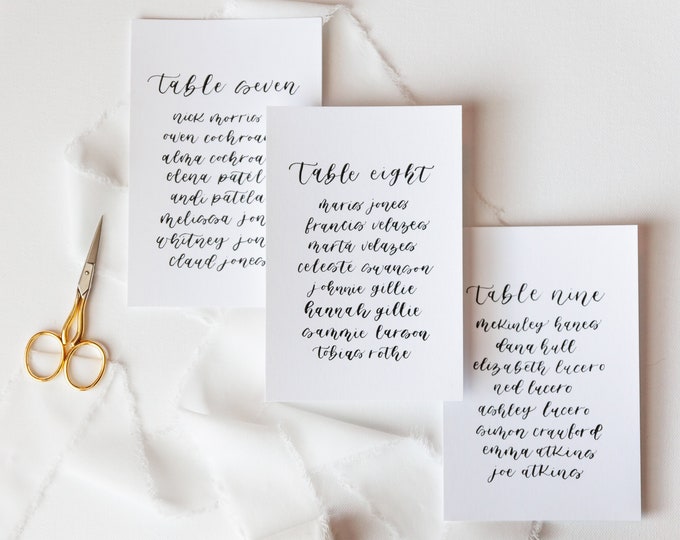 table seven
nick morris
owen cochroan
alma cochroan
elena patel
andi patela
melissa jon
whitney jon
claud jones
Table eight
maris jones
francis velazes
marta velazes
celeste swanson
johnnie gillie
hannah gillie
sammie larson
tobias rothe
Table nine
mckinley hanes
dana hull
elizabeth lucero
ned lucero
ashley lucero
simon crawford
emma atkins
joe atkins